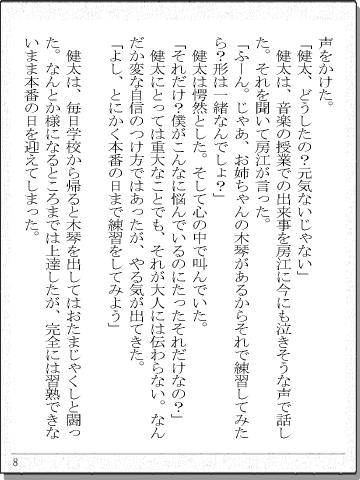 声をかけた。
「健太、どうしたの？元気ないじゃない」
　健太は、音楽の授業での出来事を房江に今にも泣きそうな声で話し
た。それを聞いて房江が言った。
「ふーん。じゃあ、お姉ちゃんの木琴があるからそれで練習してみた
ら？形は一緒なんでしょ？」
　健太は愕然とした。そして心の中で叫んでいた。
「それだけ？僕がこんなに悩んでいるのにたったそれだけなの？」
　健太にとっては重大なことでも、それが大人には伝わらない。なん
だか変な自信のつけ方ではあったが、やる気が出てきた。
「よし、とにかく本番の日まで練習をしてみよう」
　健太は、毎日学校から帰ると木琴を出してはおたまじゃくしと闘っ
た。なんとか様になるところまでは上達したが、完全には習熟できな
いまま本番の日を迎えてしまった。
8